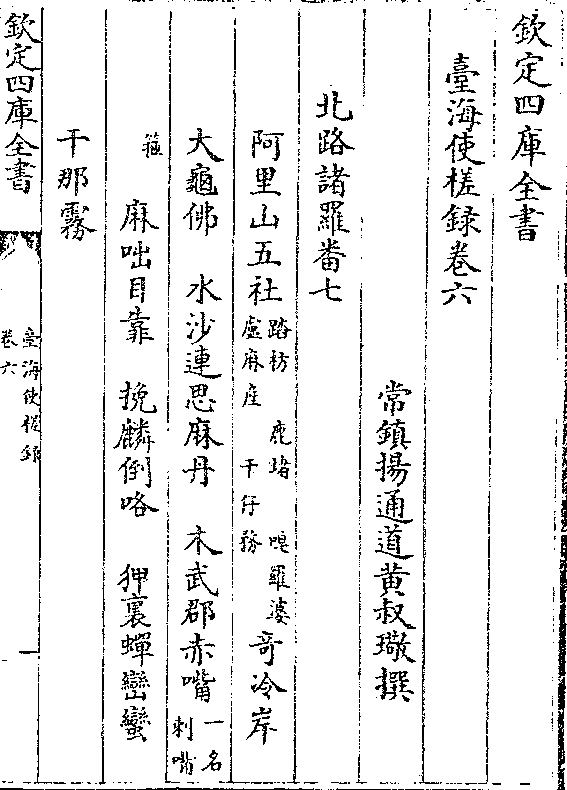 欽定四庫全書
臺海使槎録卷六
常鎮揚通道黃叔璥撰
北路諸羅番七
阿里山五社踏枋 鹿堵 唣羅婆 盧麻產 干仔務 奇冷岸
大龜佛 水沙連思麻丹 木武郡赤嘴一名刺嘴
箍 麻咄目靠 挽麟倒咯 狎裏蟬巒蠻
干那霧
欽定四庫全書
臺海使槎録
卷六
一